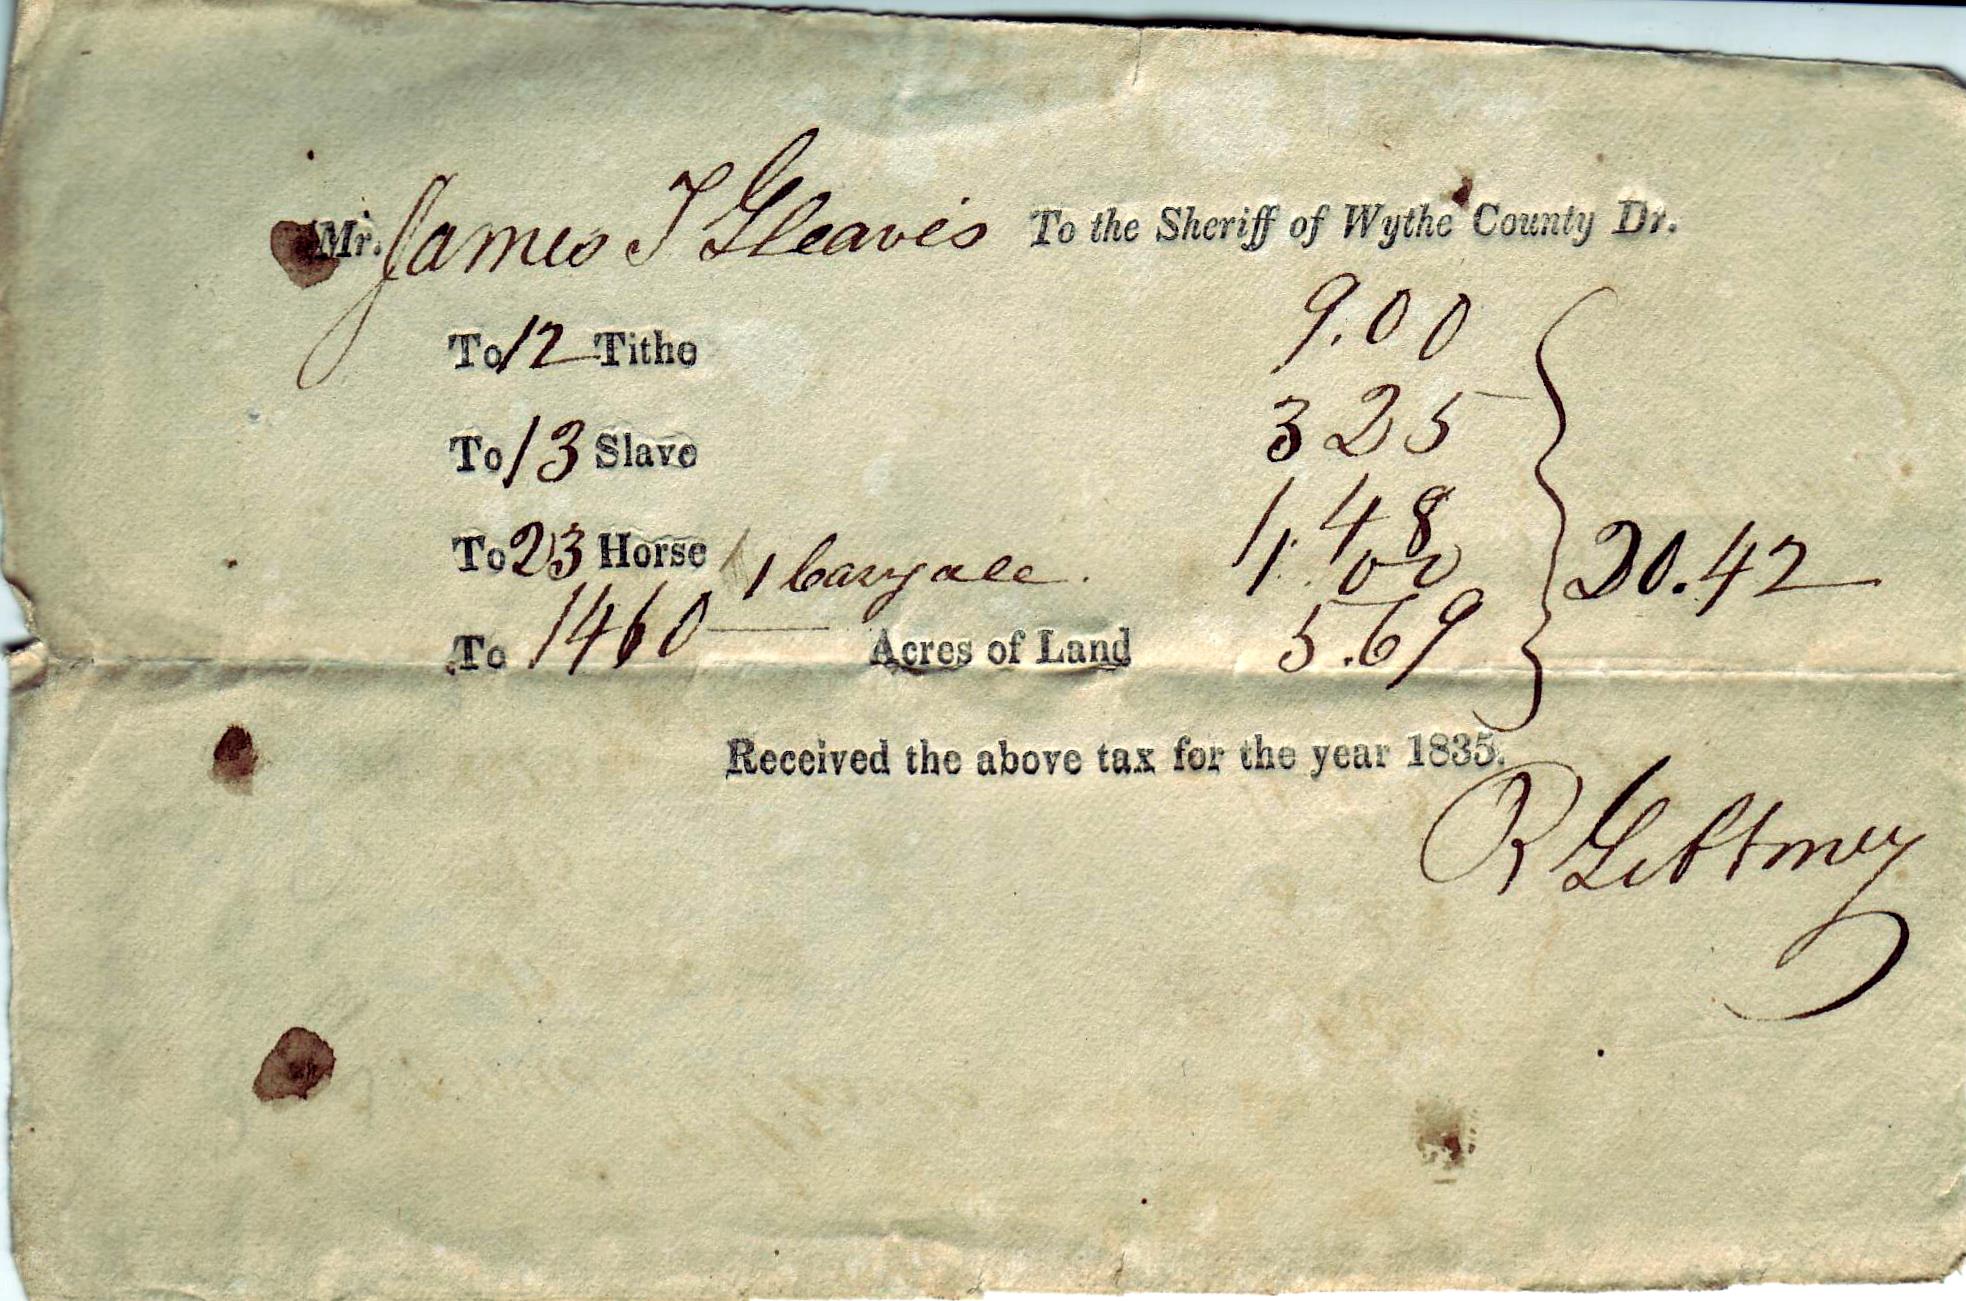 Mr. James T Gleaves To the Sheriff of Wythe County Dr.
To 12 Tithe 9.00
To 13 Slave 3 25
To 23 Horse 1.48
1 Caryall. 1.00
To 1460 Acres of Land 5.69
20.42
Received the above tax for the year 1835.
R Gibboney